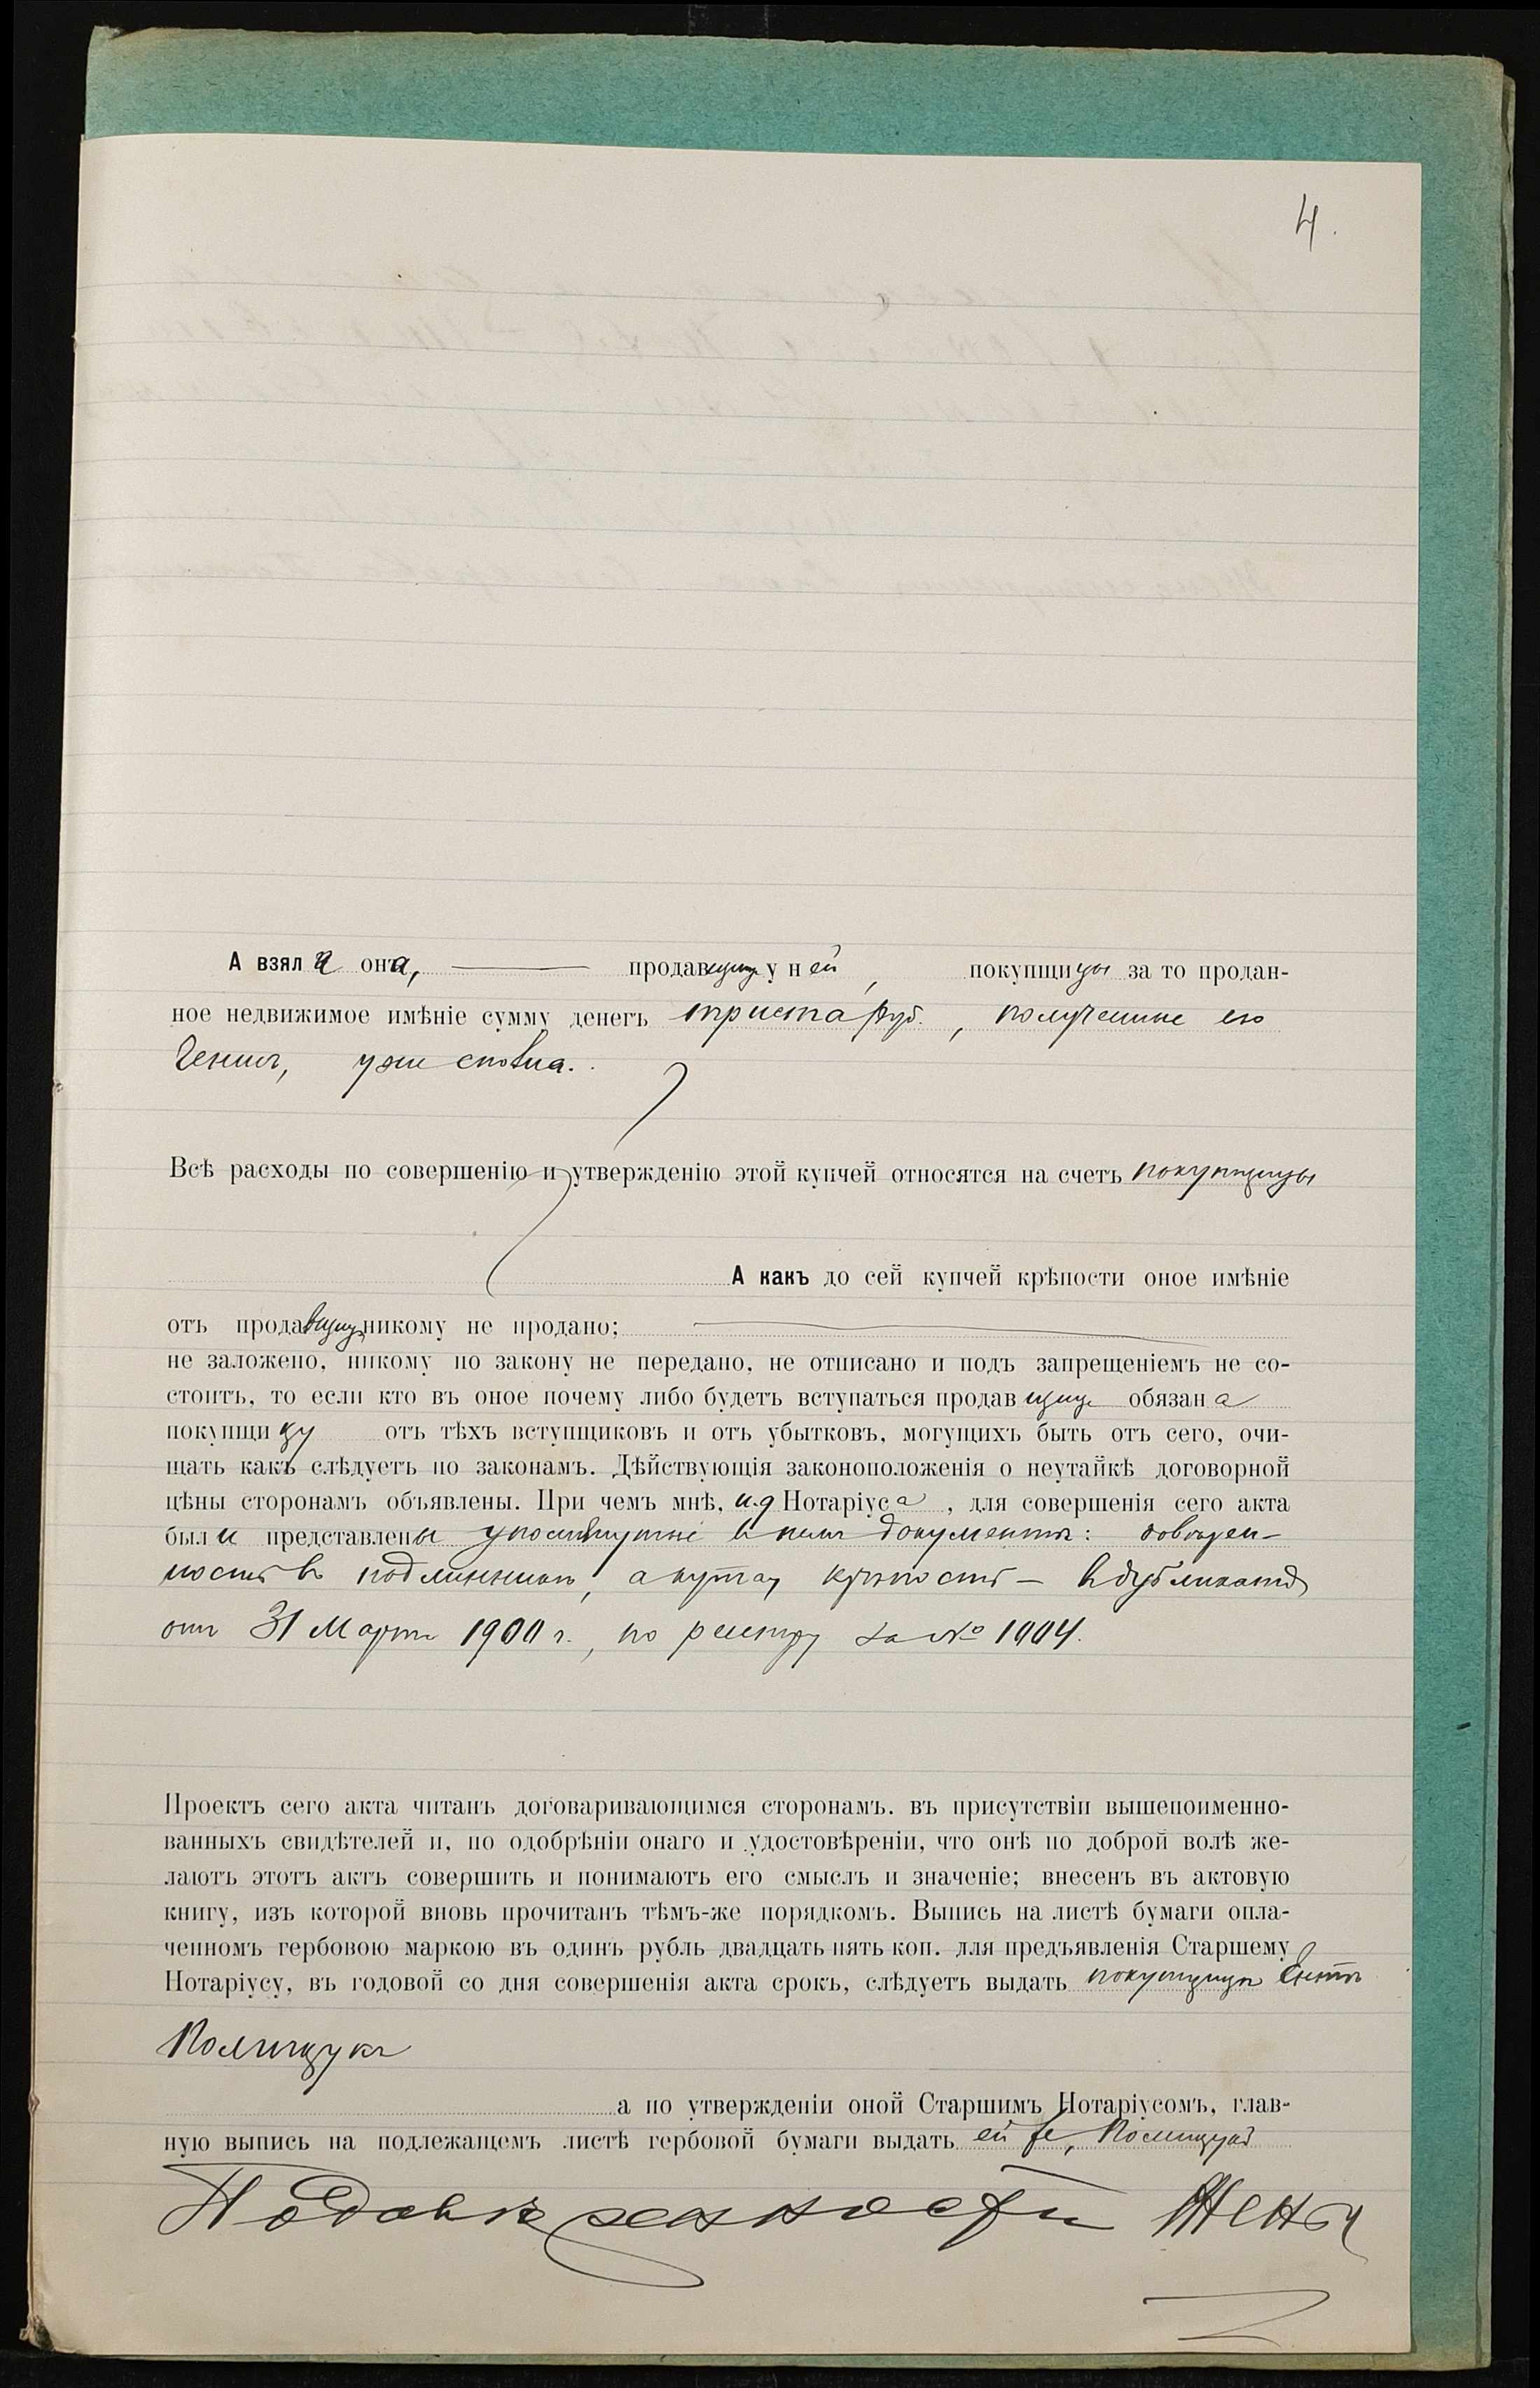 4.
А взяла она, продавщица у ней, покупщицы за то продан-
ное недвижимое имѣніе сумму денегъ триста руб., полученные ею
уже сполна.
Всѣ расходы по совершенію и утвержденію этой купчей относятся на счетъ покупщицы
А какъ до сей купчей крѣпости оное имѣніе
отъ продавщицы никому не продано;
не заложено, никому по закону не передано, не отписано и подъ запрещеніемъ не со-
стоитъ, то если кто въ оное почему либо будетъ вступаться продавщица обязана
покупщицу отъ тѣхъ вступщиковъ и отъ убытковъ, могущихъ быть отъ сего, очи-
щать какъ слѣдуетъ по законамъ. Дѣйствующія законоположенія о неутайкѣ договорной
цѣны сторонамъ объявлены. При чемъ мнѣ, и.д Нотаріуса, для совершенія сего акта
были представлены упомянутые в нем документы: доверен-
ность в подлиннике, а купчая крѣпость — в дубликатѣ
отъ 31 Марта 1900 г., по реестру за № 1904.
Проектъ сего акта читанъ договаривающимся сторонамъ. въ присутствіи вышепоименно-
ванныхъ свидѣтелей и, по одобрѣніи онаго и удостовѣреніи, что онѣ по доброй волѣ же-
лаютъ этотъ актъ совершить и понимаютъ его смыслъ и значеніе; внесенъ въ актовую
книгу, изъ которой вновь прочитанъ тѣмъ-же порядкомъ. Выпись на листѣ бумаги опла-
ченномъ гербовою маркою въ одинъ рубль двадцать пять коп. для предъявленія Старшему
Нотаріусу, въ годовой со дня совершенія акта срокъ, слѣдуетъ выдать покупщицѣ Ентѣ
Полищукъ
а по утвержденіи оной Старшимъ Нотаріусомъ, глав-
ную выпись на подлежащемъ листѣ гербовой бумаги выдать ей же, Полищукъ
По довѣренности жены